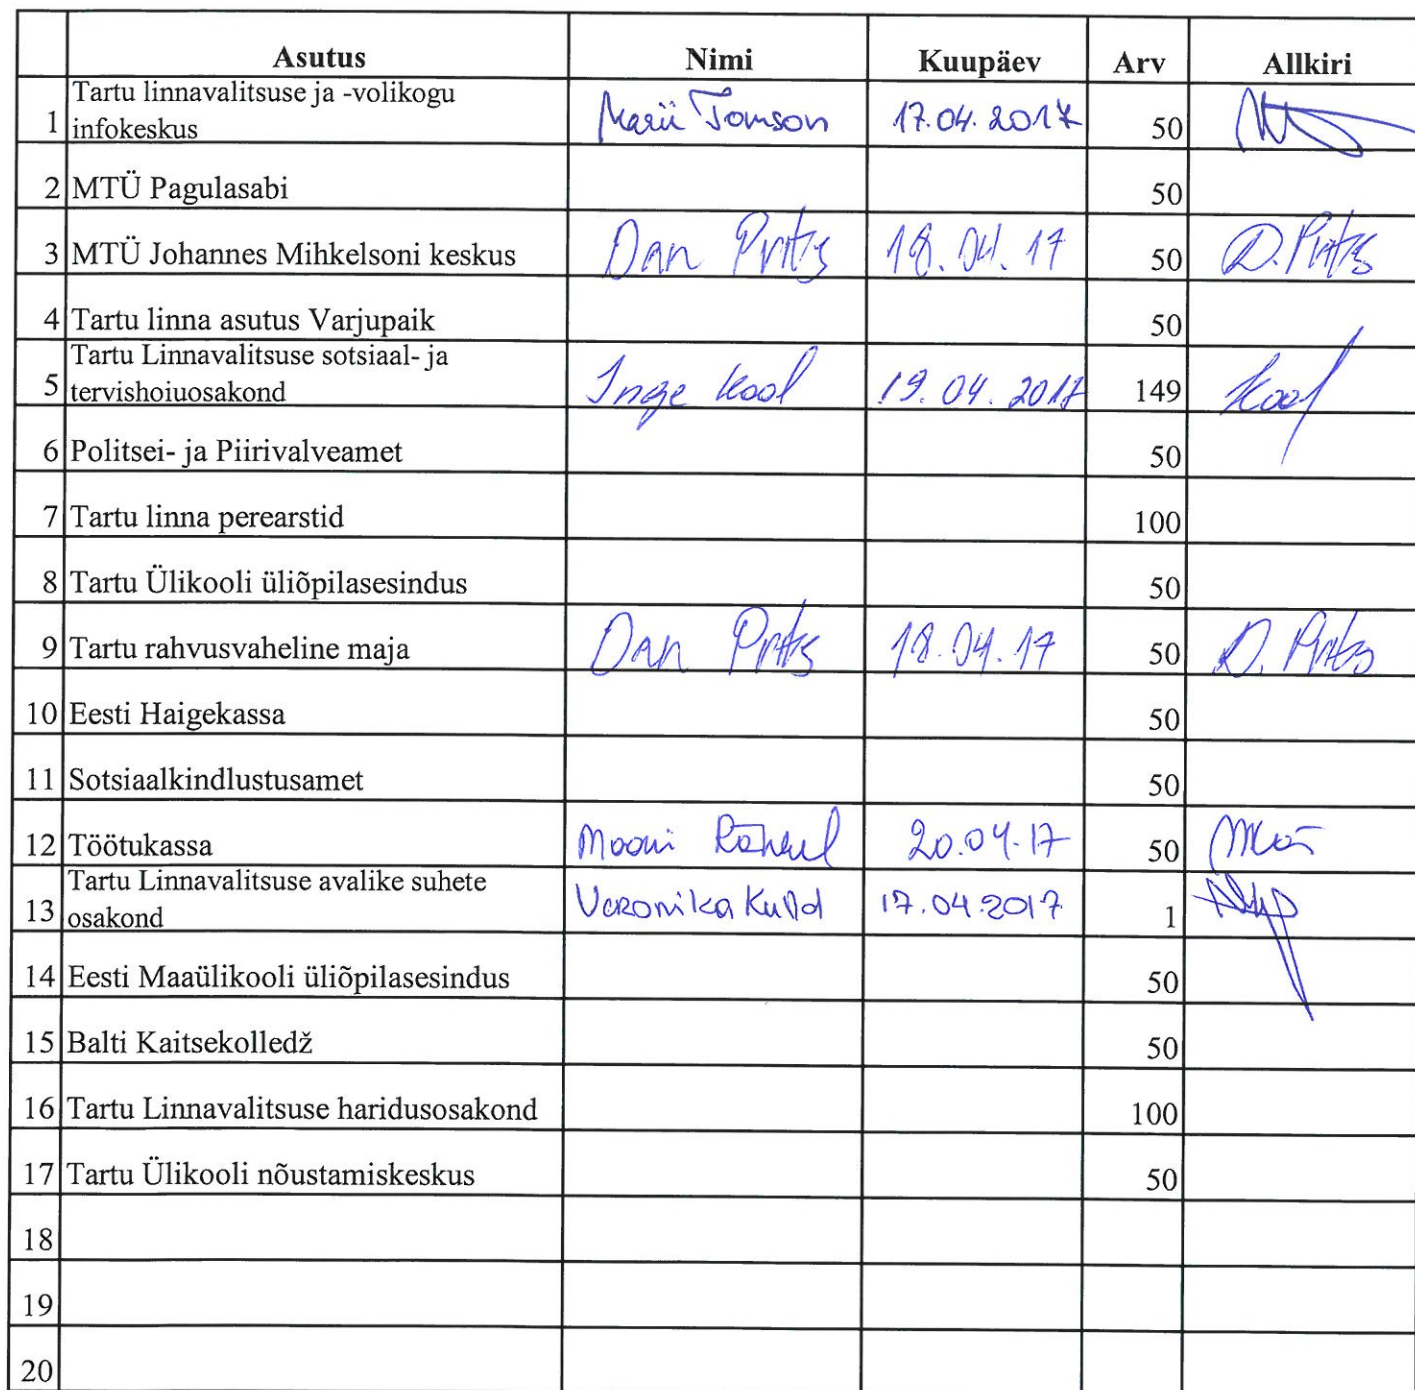 Asutus Nimi Kuupäev Arv Allkiri
Tartu linnavalitsuse ja -volikogu
1 infokeskus Marii Tomson 17.04.2017 50
2 MTÜ Pagulasabi 50
3 MTÜ Johannes Mihkelsoni keskus Dan Prits 18.04.17 50 D. Prits
4 Tartu linna asutus Varjupaik 50
Tartu Linnavalitsuse sotsiaal- ja
5 tervishoiuosakond Inge Kool 19.04.2017 149 Kool
6 Politsei- ja Piirivalveamet 50
7 Tartu linna perearstid 100
8 Tartu Ülikooli üliõpilasesindus 50
9 Tartu rahvusvaheline maja Dan Prits 18.04.17 50 D. Prits
10 Eesti Haigekassa 50
11 Sotsiaalkindlustusamet 50
12 Töötukassa Mooni 20.04.17 50
Tartu Linnavalitsuse avalike suhete
13 osakond Veronika Kulld 17.04.2017 1
14 Eesti Maaülikooli üliõpilasesindus 50
15 Balti Kaitsekolledž 50
16 Tartu Linnavalitsuse haridusosakond 100
17 Tartu Ülikooli nõustamiskeskus 50
18
19
20